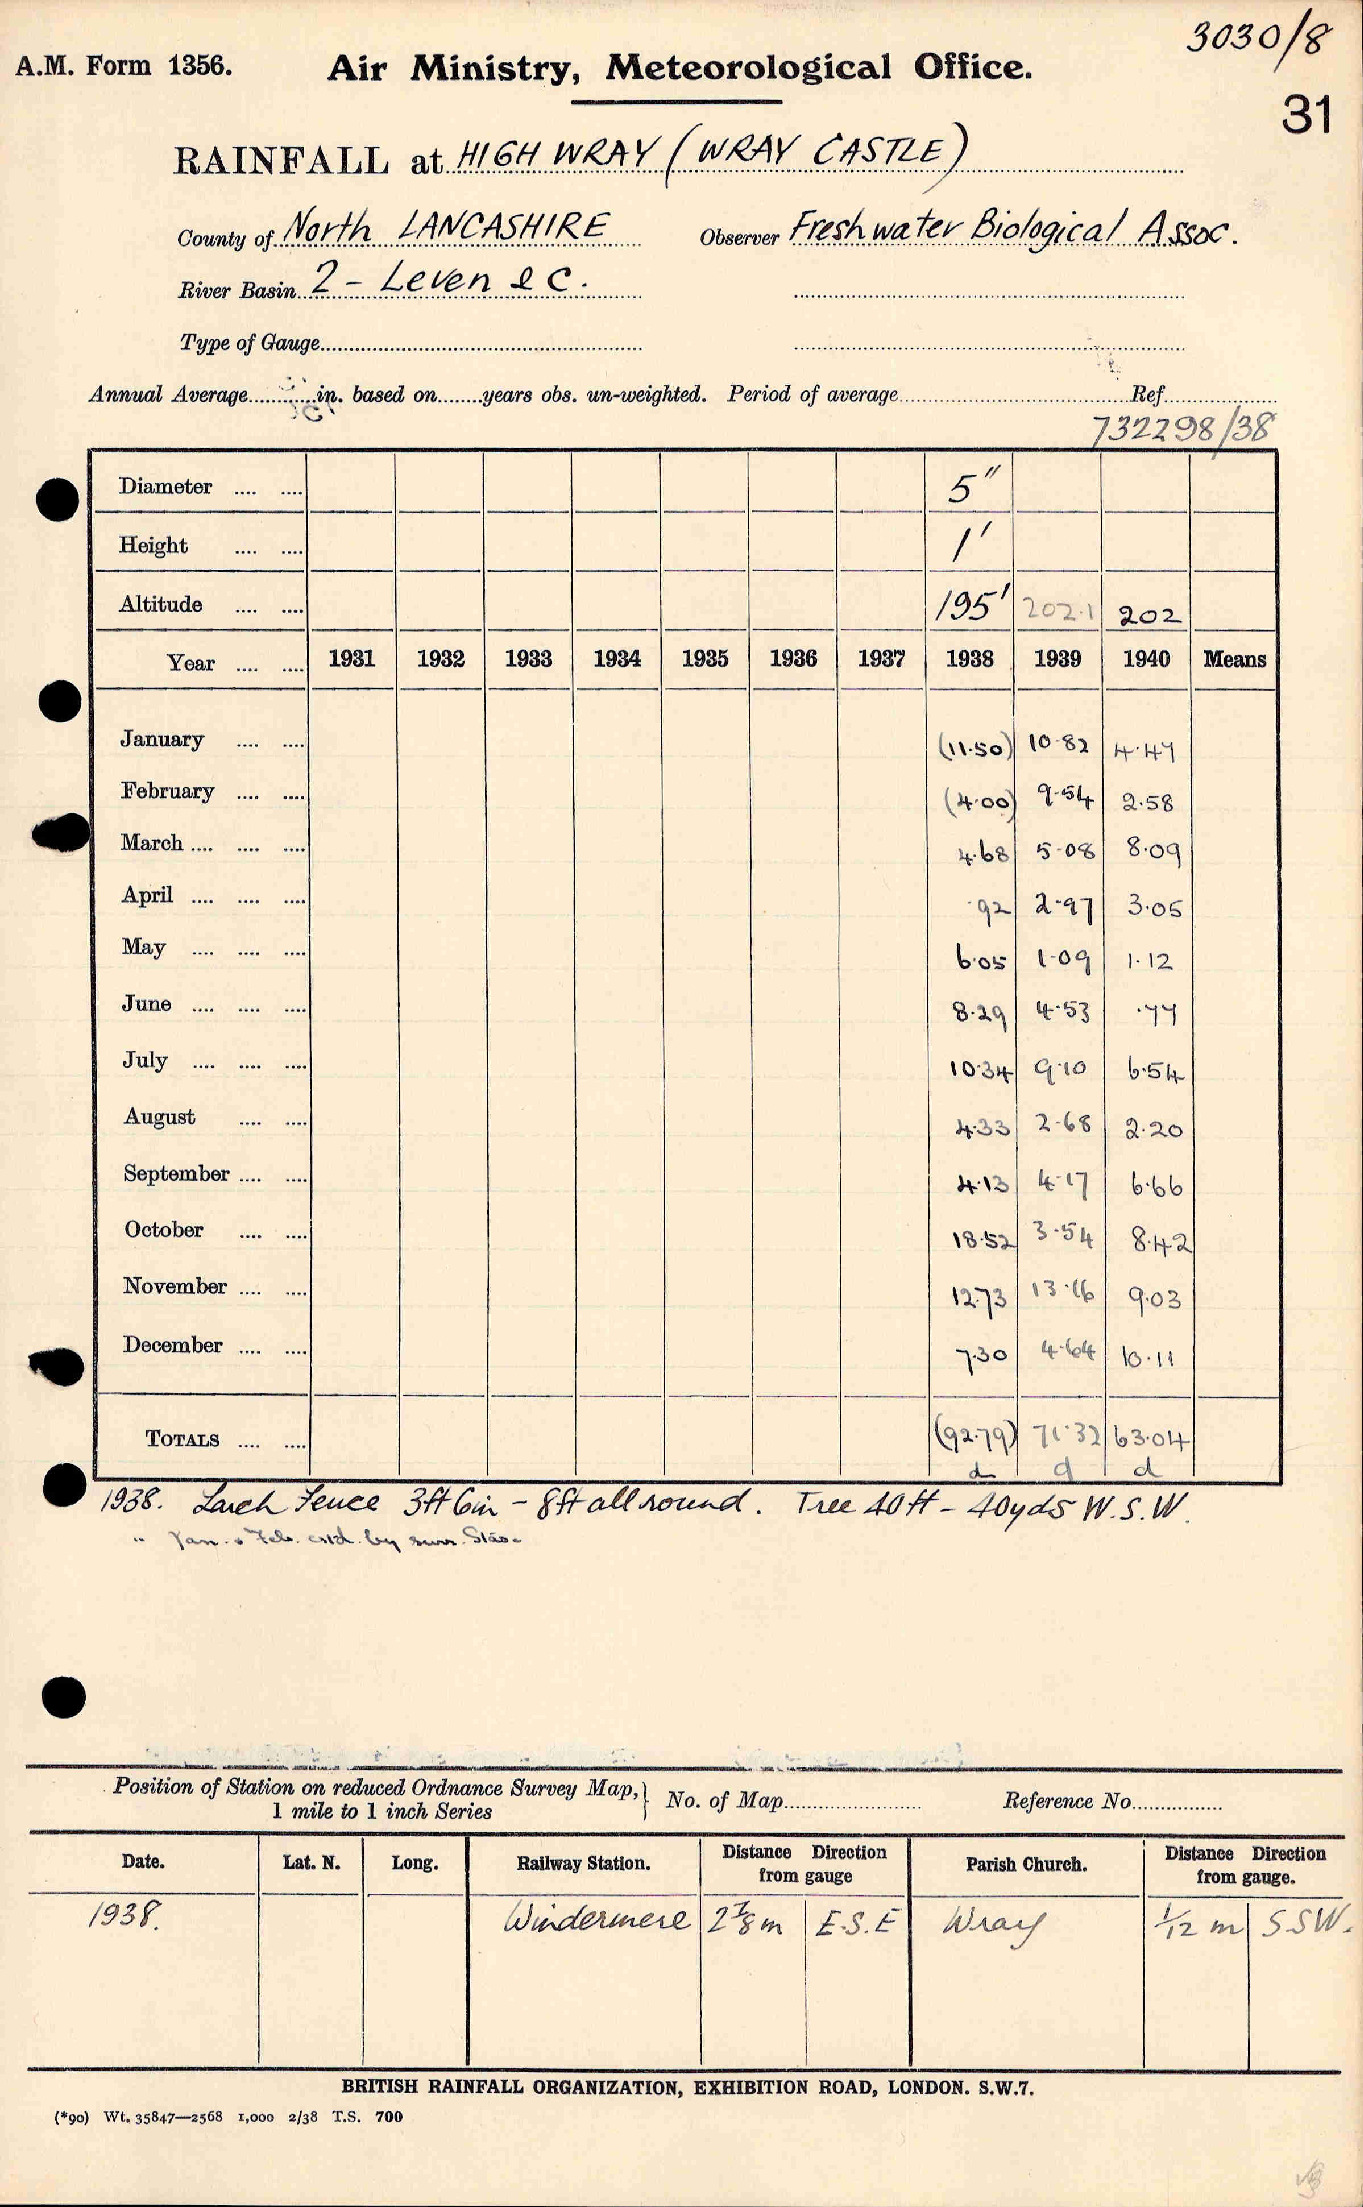 3030/8
A.M. Form 1356. Air Ministry, Meteorological Office.
31
RAINFALL at HIGH WRAY (WRAY CASTLE)
County of North LANCASHIRE Observer Freshwater Biological Assoc.
River Basin 2 - Leven &c.
Type of Gauge
Annual Average in. based on years obs. un-weighted. Period of average Ref.
732298/38
Diameter .... .... 5"
Height .... .... 1'
Altitude .... .... 195' 202.1 202
Year .... .... 1931 1932 1933 1934 1935 1936 1937 1938 1939 1940 Means
January .... .... (11.50) 10.82 4.47
February .... .... (4.00) 9.54 2.58
March .... .... .... 4.68 5.08 8.09
April .... .... .... .92 2.97 3.05
May .... .... .... 6.05 1.09 1.12
June .... .... .... 8.29 4.53 .77
July .... .... .... 10.34 9.10 6.54
August .... .... 4.33 2.68 2.20
September .... .... 4.13 4.17 6.66
October .... .... 18.52 3.54 8.42
November .... .... 12.73 13.16 9.03
December .... .... 7.30 4.64 10.11
TOTALS .... .... (92.79) 71.32 63.04
d d d
1938. Larch Fence 3ft 6in - 8ft all round. Tree 40ft - 40yds W.S.W.
" Jan. & Feb. estd. by surr. Stns.
Position of Station on reduced Ordnance Survey Map, } No. of Map Reference No.
1 mile to 1 inch Series
Date. Lat. N. Long. Railway Station. Distance Direction from gauge Parish Church. Distance Direction from gauge.
1938. Windermere 2 7/8 m E.S.E Wray 1/12 m S.S.W.
BRITISH RAINFALL ORGANIZATION, EXHIBITION ROAD, LONDON. S.W.7.
(*90) Wt. 35847—2568 1,000 2/38 T.S. 700